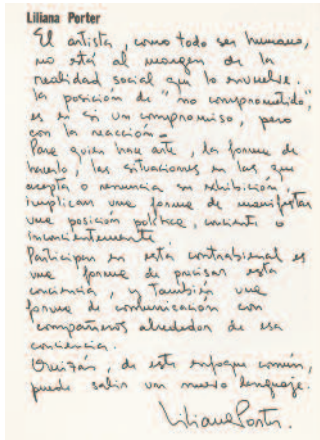 Liliana Porter
El artista, como todo ser humano,
no está al margen de la
realidad social que lo envuelve.
la posición de "no comprometido",
es en si un compromiso, pero
con la reacción.
Para quien hace arte, la forma de
hacerlo, las situaciones en las que
acepta o renuncia su exhibición,
implican una forma de manifestar
una posición política, conciente o
inconcientemente.
Participar en esta contrabienal es
una forma de precisar esta
conciencia, y también una
forma de comunicación con
compañeros alrededor de esa
conciencia.
Quizás, de este enfoque común,
puede salir un nuevo lenguaje.
Liliana Porter.